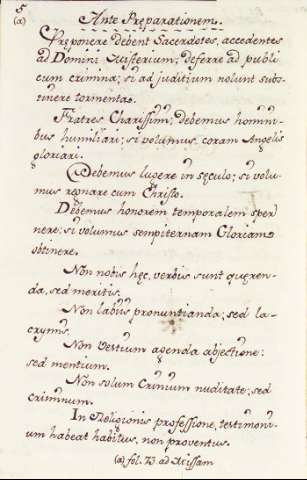 5
(a) Ante Præparationem.
Præponere debent Sacerdotes, accedentes
ad Domini Misterium; deferre ad publi
cum crimina; si ad juditium nolunt sus-
tinere tormenta.
Fratres Charissimi, debemus homini-
bus humiliari; si volumus, coram Angelis
gloriari.
Debemus lugere in sęculo; si volu-
mus regnare cum Christo.
Debemus honorem temporalem sper
nere; si volumus sempiternam Gloriam
obtinere.
Non nobis hęc, verbis sunt quęren-
da, sed meritis.
Non labiis pronuntianda; sed la-
crymis.
Non Vestium agenda abjectione;
sed mentium.
Non solum Crinium nuditate; sed
criminum.
In Religionis professione, testimoni-
um habeat habitus, non proventus.
(a) fol. 73 ad Missam